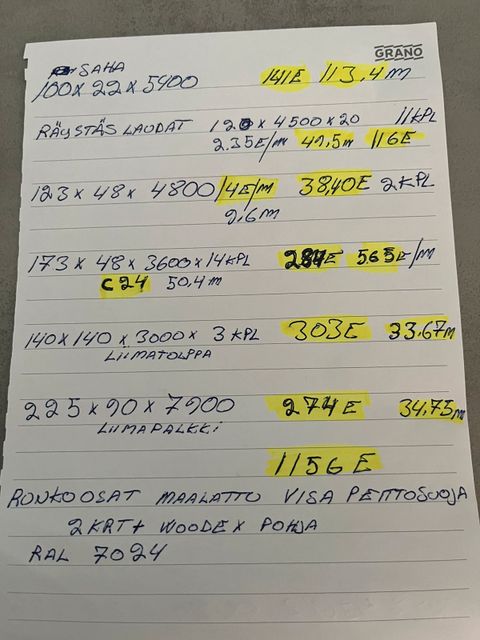 GRANO
SAHA
100 x 22 x 5400 141E 113,4m
RÄYSTÄS LAUDAT 120 x 4500 x 20 11KPL
2.35E/m 49,5m 116E
123 x 48 x 4800 4E/m 38,40E 2KPL
9,6m
173 x 48 x 3600 x 14KPL 284E 5.65E/m
C24 50,4m
140 x 140 x 3000 x 3 KPL 303E 33.67m
LIIMATOLPPA
225 x 90 x 7900 274E 34,75m
LIIMAPALKKI
1156E
RUNKO OSAT MAALATTU VISA PEITTOSUOJA
2KRT + WOODEX POHJA
RAL 7024